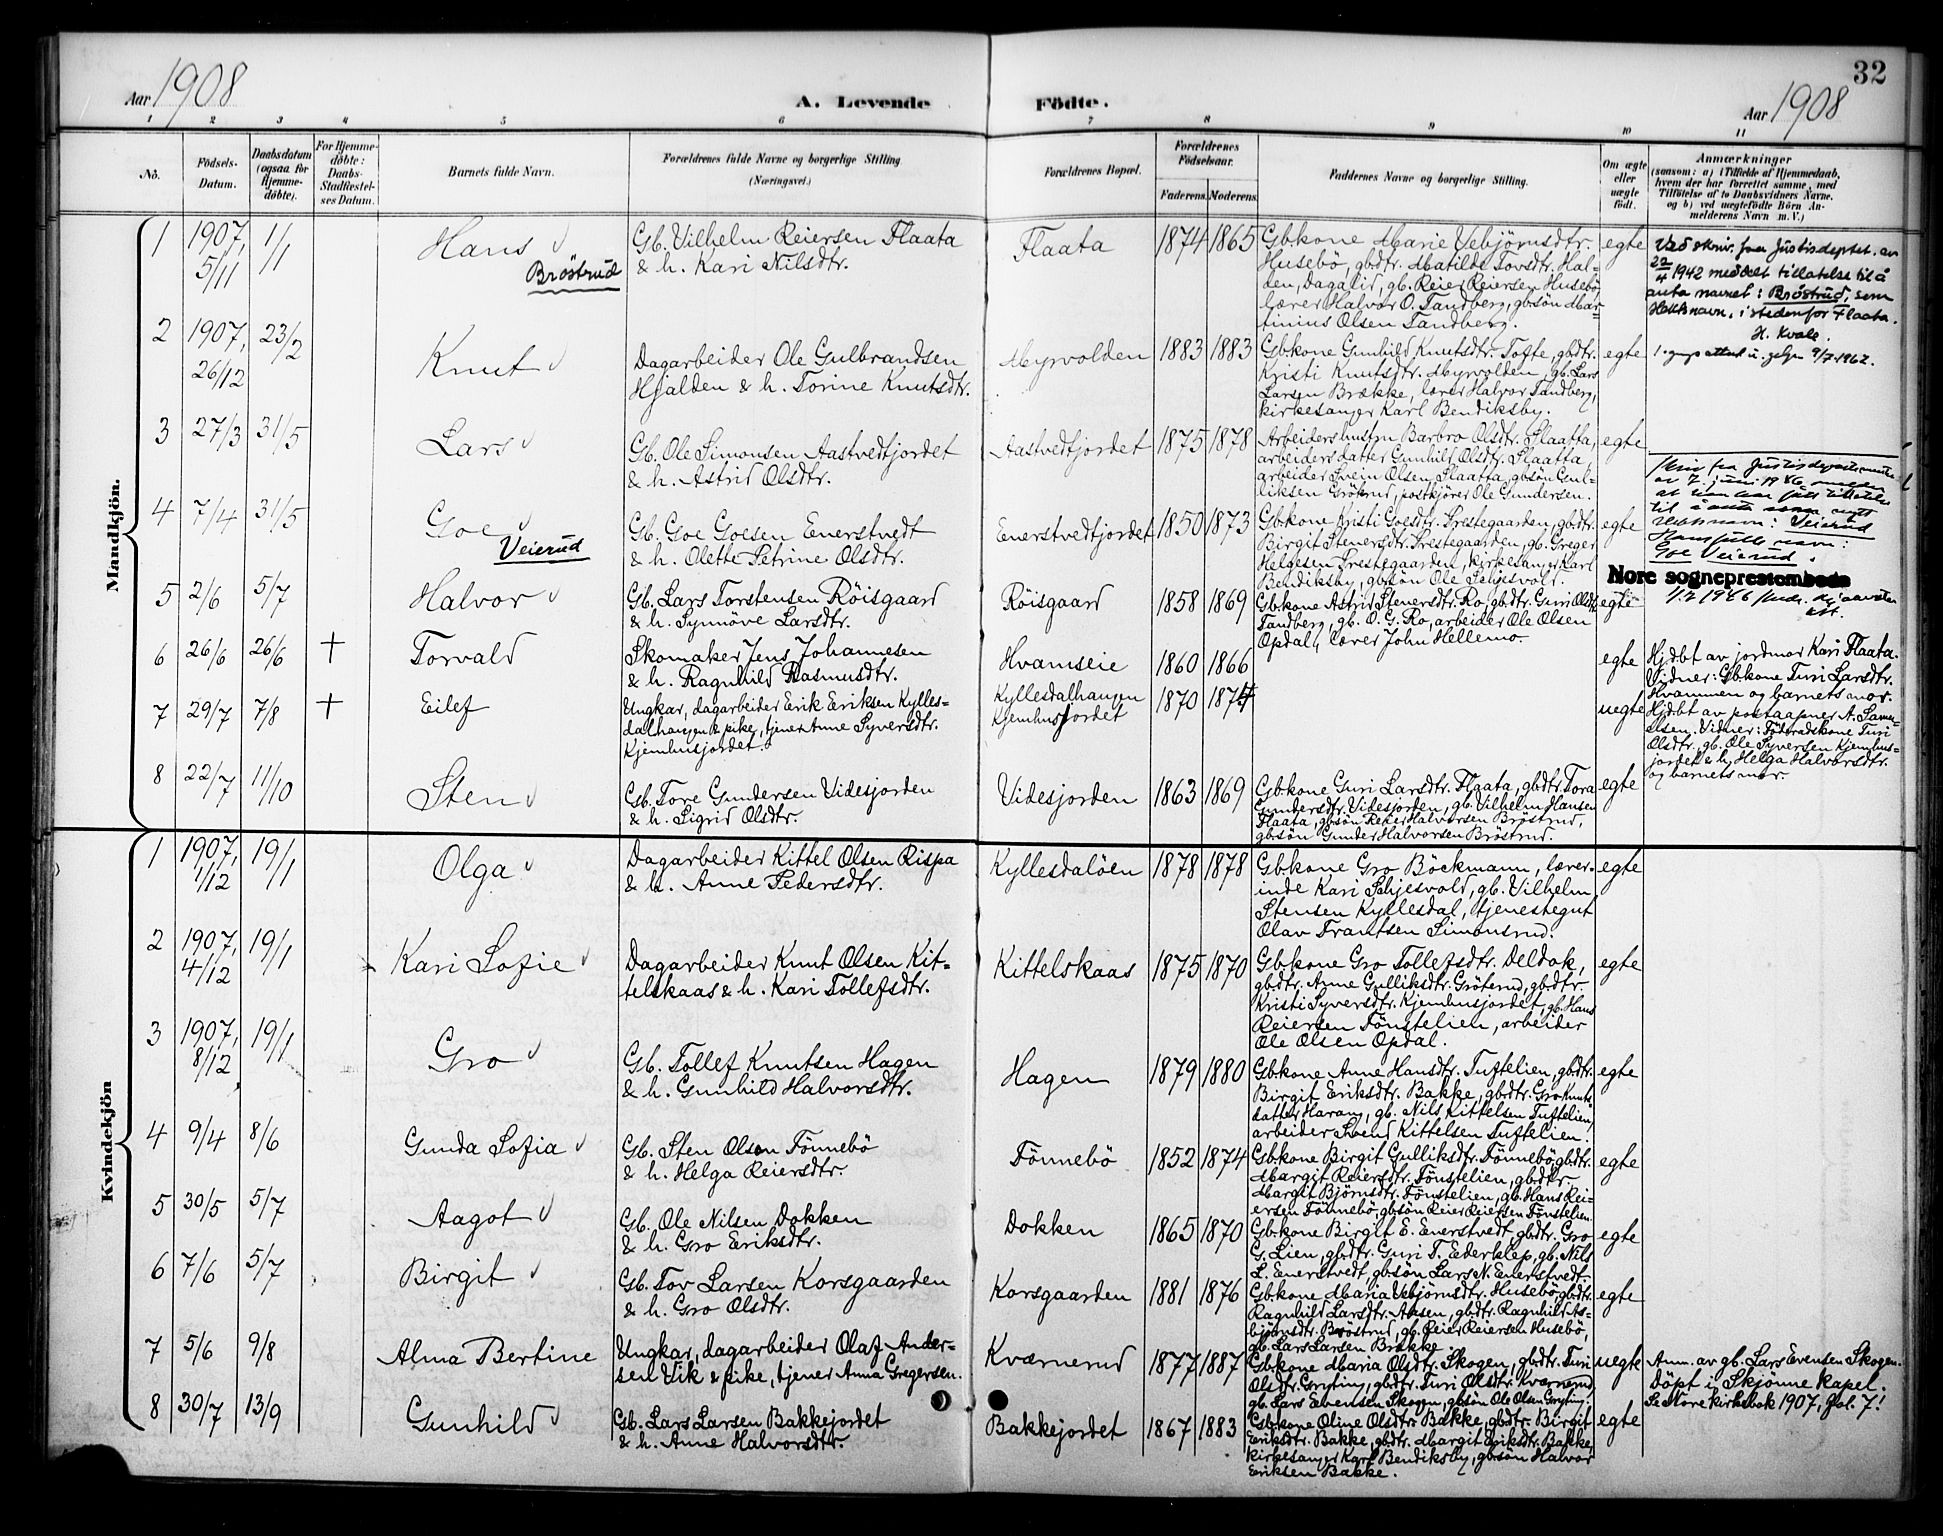 32
Aar 1908
A. Levende
Födte.
Aar 1908
1 2 3 4 5 6 7 8 9 10 11
No.
Födsels-
Datum.
Daabsdatum
(ogsaa for
Hjemme-
döbte).
For Hjemme-
döbte:
Daabs-
Stadfæstel-
ses Datum.
Barnets fulde Navn.
Forældrenes fulde Navne og borgerlige Stilling
(Næringsvei.)
Forældrenes Bopæl.
Forældrenes
Födselsaar.
Faderens. Moderens.
Faddernes Navne og borgerlige Stilling.
Om ægte
eller
uægte
födt.
Anmærkninger
(saasom: a) i Tilfælde af Hjemmedaab,
hvem der har forrettet samme, med
Tilföielse af to Daabsvidners Navne,
og b) ved uægtefödte Börn An-
melderens Navn m. V.)
Mandkjön.
1
1907,
5/11
1/1
Hans
Bröstrud
Gb. Vilhelm Reiersen Flaata
& h. Kari Nilsdtr.
Flaata
1874 1865
Gbkone Marie Vebjörnsdtr.
Husebö, gbdtr. Matilde Tovsdtr. Hal-
den, Dagalid, gb. Reier Reiersen Husebö,
lærer Halvor O. Tandberg, gbsön Mar-
tinius Olsen Tandberg.
egte
Ved skriv. fra Justisdeptet. av
22/4 1942 meddelt tillatelse til å
anta navnet: Bröstrud, som
slektsnavn, istedenfor Flaata.
H. Kvale.
2
1907,
26/12
23/2
Knut
Dagarbeider Ole Gulbrandsen
Hjalden & h. Torine Knutsdtr.
Myrvolden
1883 1883
Gbkone Gunhild Knutsdtr. Tofte, gbdtr.
Kristi Knutsdtr. Myrvolden, gb. Lars
Larsen Brække, lærer Halvor Tandberg,
kirkesanger Karl Bendiksby.
egte
9/7-1962.
3
27/3
31/5
Lars
Gb. Ole Simonsen Aastvedtjordet
& h. Astrid Olsdtr.
Aastvedtjordet
1875 1878
Arbeidershustru Barbro Olsdtr. Slaatta,
arbeidersdatter Gunhild Olsdtr. Slaatta,
arbeider Svein Olsen Slaatta, gbsön Gul-
liksen Grötrud, postkjörer Ole Gundersen.
egte
4
7/4
31/5
Goe
Veierud
Gb. Goe Goesen Enerstvedt
& h. Olette Petrine Olsdtr.
Enerstvedtjordet
1850 1873
Gbkone Kristi Goesdtr. Prestegaarden, gbdtr.
Birgit Stenersdtr. Prestegaarden, gb. Greger
Helgesen Prestegaarden, kirkesanger Karl
Bendiksby, gbsön Ole Schjesvold.
egte
Skriv fra Justisdepartementet
av 7. juni 1946
at han har fått tillatelse
til å anta som nytt
slektsnavn: Veierud
Hans fulle navn:
Goe Veierud.
Nore sogneprestembede
5
2/6
5/7
Halvor
Gb. Lars Torstensen Röisgaard
& h. Synnöve Larsdtr.
Röisgaard
1858 1869
Gbkone Astrid Stenersdtr. Ro, gbdtr. Guri Olsdtr.
Tandberg, gb. O. G. Ro, arbeider Ole Olsen
Opdal, lærer John Hellemo.
egte
6
26/6
26/6
+
Torvald
Skomaker Jens Johannesen
& h. Ragnhild Rasmusdtr.
Hvamseie
1860 1866
egte
Hjdbt av jordmor Kari Flaata.
Vidner: Gbkone Turi Larsdtr.
Hvammen og barnets mor.
7
29/7
7/8
+
Eilef
Ungkar, dagarbeider Erik Eriksen Kylles-
dalhaugen & pike, tjener Anne Syversdtr.
Kjemhusjordet.
Kyllesdalhaugen
Kjemhusjordet
1870 1874
uegte
Hjdbt av postaapner A. Samu-
elsen. Vidner: Föderaadskone Turi
Olsdtr., gb. Ole Syversen Kjemhus-
jordet & h. Helga Halvorsdtr.
og barnets mor.
8
22/7
11/10
Sten
Gb. Tore Gundersen Videsjorden
& h. Sigrid Olsdtr.
Videsjorden
1863 1869
Gbkone Guri Larsdtr. Flaata, gbdtr. Tora
Gundersdtr. Videsjorden, gb. Vilhelm Hansen
Flaata, gbsön Reier Halvorsen Bröstrud,
gbsön Gunder Halvorsen Bröstrud.
egte
Kvindekjön
1
1907,
1/12
19/1
Olga
Dagarbeider Kittel Olsen Rispa
& h. Anne Pedersdtr.
Kyllesdalöen
1878 1878
Gbkone Gro Böckmann, lærer-
inde Kari Schjesvold, gb. Vilhelm
Stensen Kyllesdal, tjenestegut
Olav Frantsen Simonsrud.
egte
2
1907,
4/12
19/1
Kari Sofie
Dagarbeider Knut Olsen Kit-
telskaas & h. Kari Tollefsdtr.
Kittelskaas
1875 1870
Gbkone Gro Tollefsdtr. Deldok,
gbdtr. Anne Gulliksdtr. Gröterud, gbdtr.
Kristi Syversdtr. Kjemhusjordet, gb. Hans
Reiersen Fönstelien, arbeider
Ole Olsen Opdal.
egte
3
1907,
8/12
19/1
Gro
Gb. Tollef Knutsen Hagen
& h. Gunhild Halvorsdtr.
Hagen
1879 1880
Gbkone Anne Hansdtr. Tuftelien, gbdtr.
Birgit Eriksdtr. Bakke, gbdtr. Gro Knuts-
datter Haram, gb. Nils Kittelsen Tuftelien,
arbeider Svend Kittelsen Tuftelien.
egte
4
9/4
8/6
Gunda Sofia
Gb. Sten Olsen Fönnebö
& h. Helga Reiersdtr.
Fönnebö
1852 1874
Gbkone Birgit Gulliksdtr. Fönnebö, gbdtr.
Margit Reiersdtr. Fönstelien, gbdtr.
Margit Björnsdtr. Fönstelien, gb. Hans Rei-
ersen Fönnebö, gbsön Reier Reiersen Fönstelien.
egte
5
30/5
5/7
Aagot
Gb. Ole Nilsen Dokken
& h. Gro Eriksdtr.
Dokken
1865 1870
Gbkone Birgit E. Enerstvedt, gbdtr. Gro
G. Lien, gbdtr. Guri T. Ederklep, gb. Nils
L. Enerstvedt, gbsön Lars N. Enerstvedt.
egte
6
7/6
5/7
Birgit
Gb. Tov Larsen Korsgaarden
& h. Gro Olsdtr.
Korsgaarden
1881 1876
Gbkone Maria Vebjörnsdtr. Husebö, gbdtr.
Ragnhild Larsdtr. Aasen, gbdtr. Ragnhild As-
björnsdtr. Bröstrud, gb. Reier Reiersen Husebö,
gb. Lars Larsen Brække.
egte
7
5/6
9/8
Alma Bertine
Ungkar, dagarbeider Olaf Ander-
sen Vik & pike, tjener Anna Gregersen.
Kværnerud
1877 1887
Gbkone Maria Olsdtr. Skogen, gbdtr. Turi
Olsdtr. Gryting, gbdtr. Turi Olsdtr. Kværnerud,
gb. Lars Evensen Skogen, gbsön Ole Olsen Gryting.
uegte
Anm. av gb. Lars Evensen Skogen.
Döpt i Skjönne kapel.
Se Nore kirkebok 1907, fol. 7!
8
30/7
13/9
Gunhild
Gb. Lars Larsen Bakkejordet
& h. Anne Halvorsdtr.
Bakkejordet
1867 1883
Gbkone Oline Olsdtr. Bakke, gbdtr. Birgit
Eriksdtr. Bakke, gbdtr. Margit Eriksdtr. Bakke,
kirkesanger Karl Bendiksby, gbsön Halvor
Eriksen Bakke.
egte